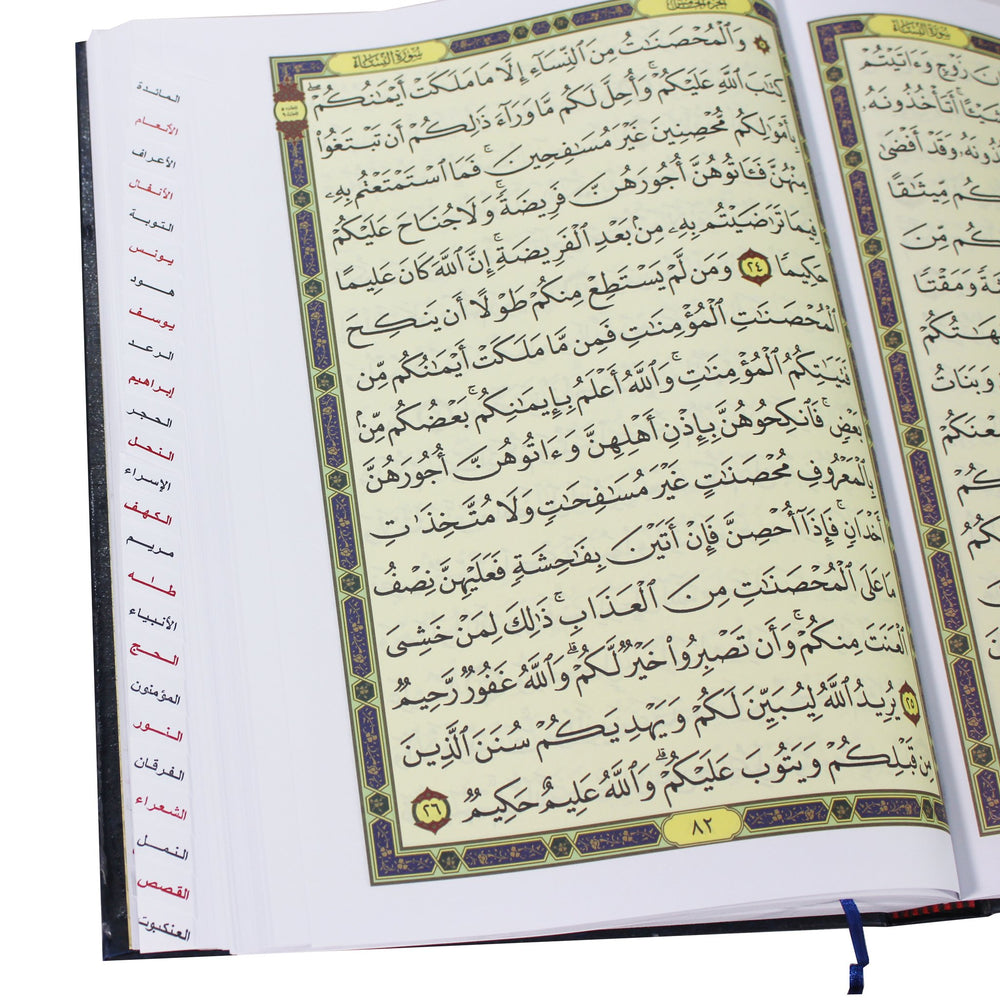 سورة النساء
۞ وَٱلْمُحْصَنَٰتُ مِنَ ٱلنِّسَآءِ إِلَّا مَا مَلَكَتْ أَيْمَٰنُكُمْ ۖ
كِتَٰبَ ٱللَّهِ عَلَيْكُمْ ۚ وَأُحِلَّ لَكُم مَّا وَرَآءَ ذَٰلِكُمْ أَن تَبْتَغُوا۟
بِأَمْوَٰلِكُم مُّحْصِنِينَ غَيْرَ مُسَٰفِحِينَ ۚ فَمَا ٱسْتَمْتَعْتُم بِهِۦ
مِنْهُنَّ فَـَٔاتُوهُنَّ أُجُورَهُنَّ فَرِيضَةً ۚ وَلَا جُنَاحَ عَلَيْكُمْ
فِيمَا تَرَٰضَيْتُم بِهِۦ مِنۢ بَعْدِ ٱلْفَرِيضَةِ ۚ إِنَّ ٱللَّهَ كَانَ عَلِيمًا
حَكِيمًا ٢٤ وَمَن لَّمْ يَسْتَطِعْ مِنكُمْ طَوْلًا أَن يَنكِحَ
ٱلْمُحْصَنَٰتِ ٱلْمُؤْمِنَٰتِ فَمِن مَّا مَلَكَتْ أَيْمَٰنُكُم مِّن
فَتَيَٰتِكُمُ ٱلْمُؤْمِنَٰتِ ۚ وَٱللَّهُ أَعْلَمُ بِإِيمَٰنِكُم ۚ بَعْضُكُم مِّنۢ
بَعْضٍ ۚ فَٱنكِحُوهُنَّ بِإِذْنِ أَهْلِهِنَّ وَءَاتُوهُنَّ أُجُورَهُنَّ
بِٱلْمَعْرُوفِ مُحْصَنَٰتٍ غَيْرَ مُسَٰفِحَٰتٍ وَلَا مُتَّخِذَٰتِ
أَخْدَانٍ ۚ فَإِذَآ أُحْصِنَّ فَإِنْ أَتَيْنَ بِفَٰحِشَةٍ فَعَلَيْهِنَّ نِصْفُ
مَا عَلَى ٱلْمُحْصَنَٰتِ مِنَ ٱلْعَذَابِ ۚ ذَٰلِكَ لِمَنْ خَشِىَ
ٱلْعَنَتَ مِنكُمْ ۚ وَأَن تَصْبِرُوا۟ خَيْرٌ لَّكُمْ ۗ وَٱللَّهُ غَفُورٌ رَّحِيمٌ
٢٥ يُرِيدُ ٱللَّهُ لِيُبَيِّنَ لَكُمْ وَيَهْدِيَكُمْ سُنَنَ ٱلَّذِينَ
مِن قَبْلِكُمْ وَيَتُوبَ عَلَيْكُمْ ۗ وَٱللَّهُ عَلِيمٌ حَكِيمٌ ٢٦
٨٢
المائدة
الأنعام
الأعراف
الأنفال
التوبة
يونس
هود
يوسف
الرعد
إبراهيم
الحجر
النحل
الإسراء
الكهف
مريم
طـٰه
الأنبياء
الحج
المؤمنون
النور
الفرقان
الشعراء
النمل
القصص
العنكبوت
سورة النساء
زَوْجٍ وَءَاتَيْتُمْ
أَتَأْخُذُونَهُۥ
وَقَدْ أَفْضَىٰ
مِّيثَٰقًا
مِّنَ
وَمَقْتًا
وَبَنَاتُ